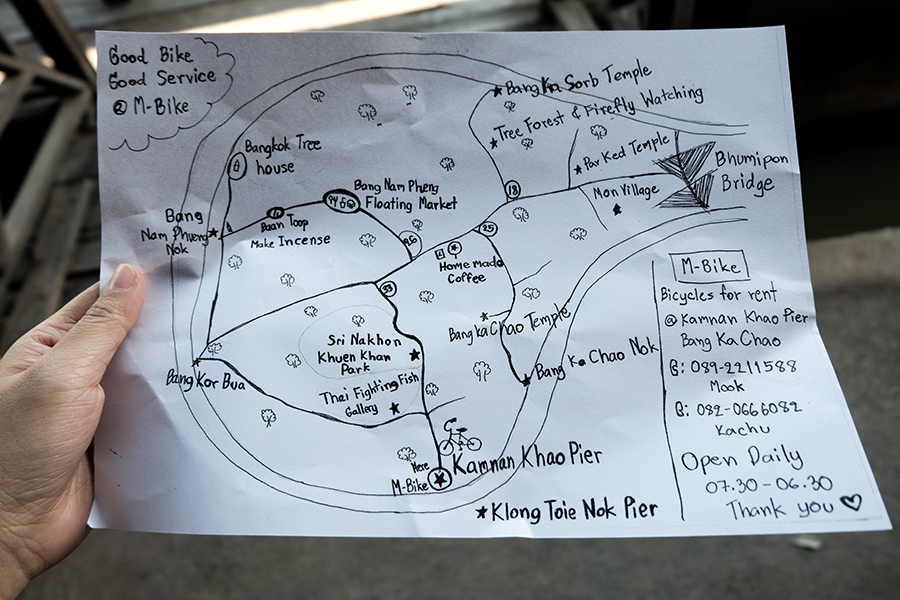 Good Bike
Good Service
@ M-Bike
Bangkok Tree
house
Bang
Nam Phueng
Nok
Baan Toop
Make Incense
Bang Nam Pheng
Floating Market
Bang Ka Sorb Temple
Tree Forest & Firefly Watching
Par Ked Temple
Mon Village
Bhumipon
Bridge
18
25
26
33
Home made
Coffee
Bang Ka Chao Temple
Bang Ka Chao Nok
Sri Nakhon
Khuen Khan
Park
Thai Fighting Fish
Gallery
Bang Kor Bua
Here
M-Bike
Kamnan Khao Pier
Klong Toie Nok Pier
M-Bike
Bicycles for rent
@ Kamnan Khao Pier
Bang Ka Chao
: 089-2211588
Mook
: 082-0666082
Kachu
Open Daily
07.30-06.30
Thank you